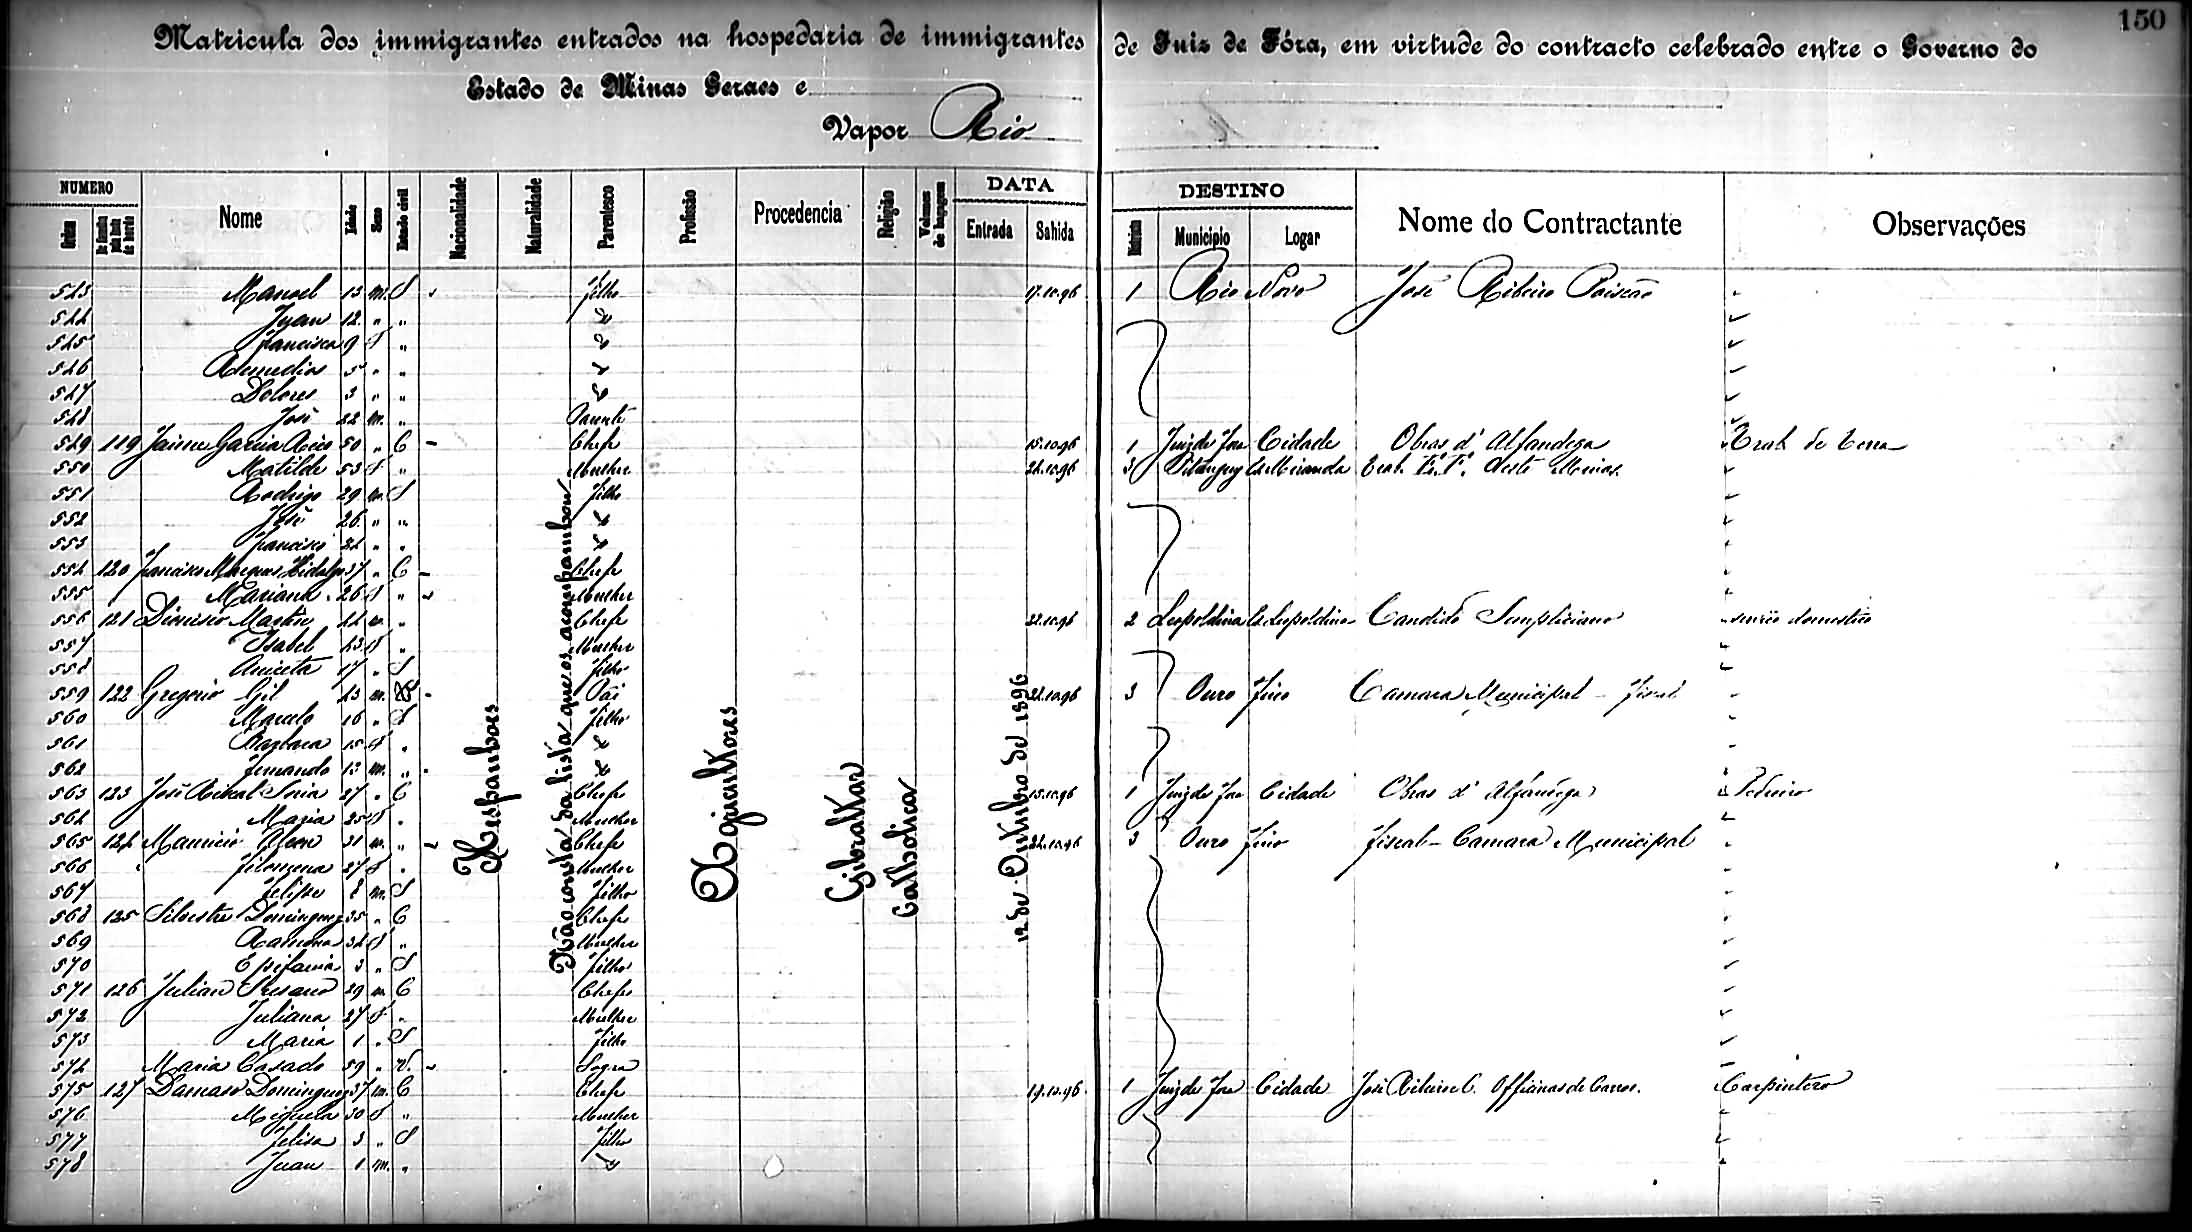 150
Matricula dos immigrantes entrados na hospedaria de immigrantes de Juiz de Fóra, em virtude do contracto celebrado entre o Governo do
Estado de Minas Geraes e
Vapor Rio
NUMERO Nome Idade Sexo Estado civil Nacionalidade Naturalidade Parentesco Profissão Procedencia Religião Volumes de bagagem DATA DESTINO Nome do Contractante Observações
Ordem Entrada Sahida Districto Municipio Logar
543 Manoel 13 m. S Filho 17.10.96 1 Rio Novo José Ribeiro
544 Juan 12 " "
545 Francisca 9 S "
546 Remedios 5 " "
547 Dolores 3 " "
548 José 22 m. " Parente
549 119 Jaime Garcia 50 " C Chefe 15.10.96 1 Juiz de Fora Cidade Obras d' Alfandega Trab. de Terra
550 Matilde 53 S " Mulher 24.10.96 3 Pitanguy Miranda Trab. Oeste Minas.
551 Rodrigo 29 m. S Filho
552 José 26 " "
553 Francisco 24 " "
554 120 Francisco Marques Hidalgo 37 " C Chefe
555 Mariana 26 S " Mulher
556 121 Dionisio Martin 44 m. " Chefe 22.10.96 2 Leopoldina Leopoldina Candido Simpliciano domestico
557 Isabel 43 S " Mulher
558 Aniceta 17 " S Filho
559 122 Gregorio Gil 43 m. Pai 24.10.96 3 Ouro Fino Camara Municipal - Fiscal
560 Marcelo 16 " S Filho
561 Barbara 15 S "
562 Fernando 13 m. "
563 123 José Soria 27 " C Chefe 15.10.96 1 Juiz de Fora Cidade Obras d' Alfandega Pedreiro
564 Maria 25 S " Mulher
565 124 Mauricio 31 m. " Chefe 24.10.96 3 Ouro Fino Fiscal - Camara Municipal
566 Filomena 27 S " Mulher
567 Felipe 8 m. S Filho
568 125 Silvestre Dominguez 35 " C Chefe
569 Ramona 34 S " Mulher
570 Epifania 3 " S Filho
571 126 Julian 29 m. C Chefe
572 Juliana 27 S " Mulher
573 Maria 1 " S Filho
574 Maria Casado 59 " V. Sogra
575 127 Damaso Dominguez 37 m. C Chefe 19.10.96 1 Juiz de Fora Cidade José Ribeiro C. Officinas de Carros. Carpinteiro
576 Miguela 30 S " Mulher
577 Felisa 3 " S Filho
578 Juan 1 m. "
Hespanhoes
Não consta da lista que os acompanhou
Agricultores
Gibraltar
Catholica
12 de Outubro de 1896